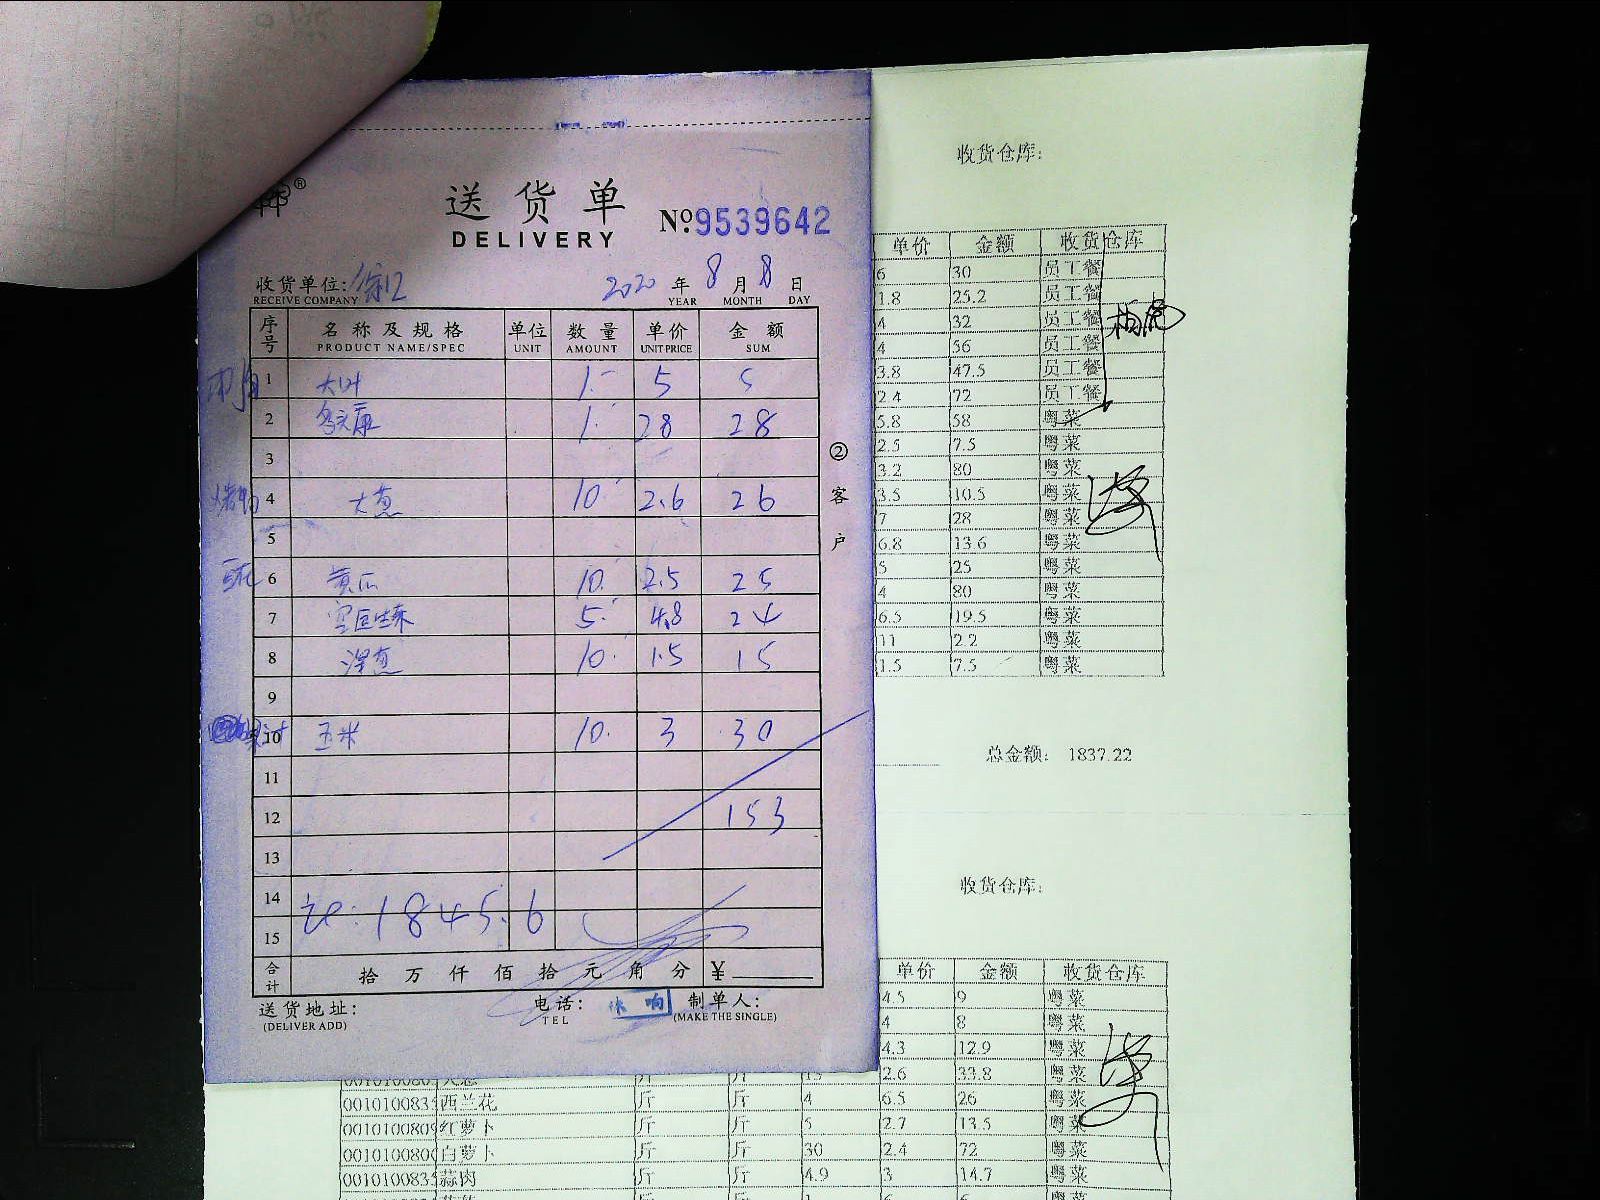 送货单
DELIVERY
№:9539642
收货单位:
RECEIVE COMPANY
2020 年 8 月 8 日
YEAR MONTH DAY
序号 名称及规格 单位 数量 单价 金额
PRODUCT NAME/SPEC UNIT AMOUNT UNIT PRICE SUM
1 大叶 1 5 5
2 1 28 28
3
4 大葱 10 2.6 26
5
6 黄瓜 10 2.5 25
7 5 4.8 24
8 洋葱 10 1.5 15
9
10 玉米 10 3 30
11
12 153
13
14
15
1845.6
合计 拾万仟佰拾元角分 ¥
送货地址:
(DELIVER ADD)
电话:
TEL
制单人:
(MAKE THE SINGLE)
②客户
收货仓库:
单价 金额 收货仓库
6 30 员工餐
1.8 25.2 员工餐
4 32 员工餐
4 56 员工餐
3.8 47.5 员工餐
2.4 72 员工餐
5.8 58 粤菜
2.5 7.5 粤菜
3.2 80 粤菜
3.5 10.5 粤菜
7 28 粤菜
6.8 13.6 粤菜
5 25 粤菜
4 80 粤菜
6.5 19.5 粤菜
11 2.2 粤菜
1.5 7.5 粤菜
总金额: 1837.22
收货仓库:
单价 金额 收货仓库
4.5 9 粤菜
4 8 粤菜
4.3 12.9 粤菜
大葱 斤 斤 13 2.6 33.8 粤菜
001010083 西兰花 斤 斤 4 6.5 26 粤菜
001010080 红萝卜 斤 斤 5 2.7 13.5 粤菜
001010080 白萝卜 斤 斤 30 2.4 72 粤菜
001010083 蒜肉 斤 斤 4.9 3 14.7 粤菜